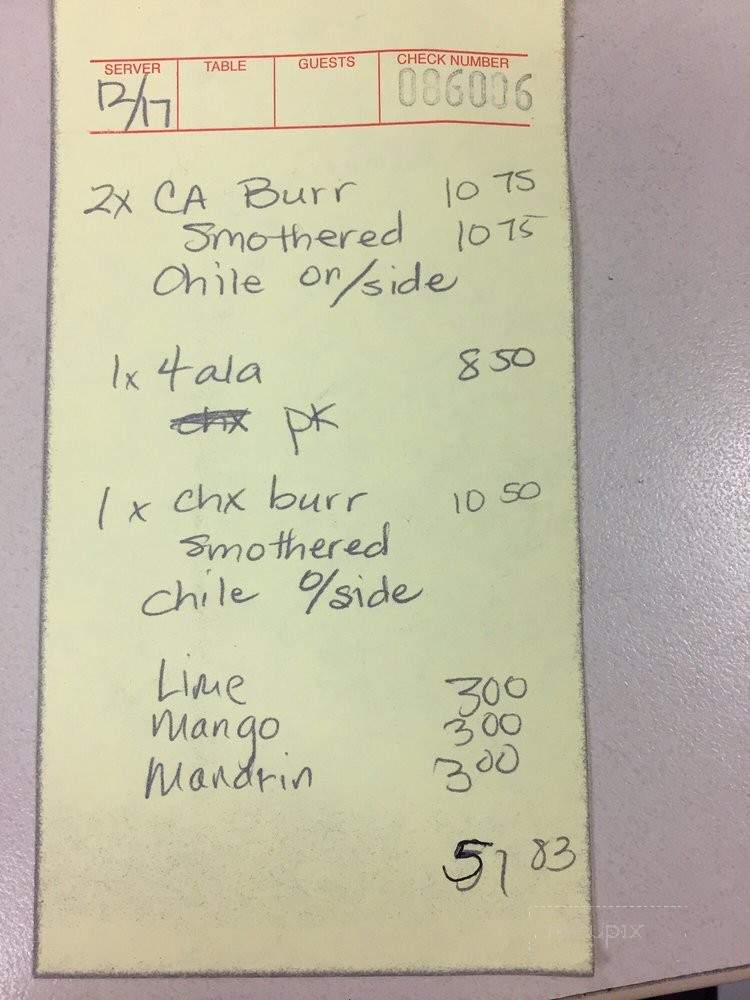 SERVER TABLE GUESTS CHECK NUMBER
12/17 086006
2x CA Burr 10 75
Smothered 10 75
Chile on/side
1x 4 ala 8 50
chx pk
1 x chx burr 10 50
Smothered
Chile o/side
Lime 3 00
Mango 3 00
Mandrin 3 00
51 83